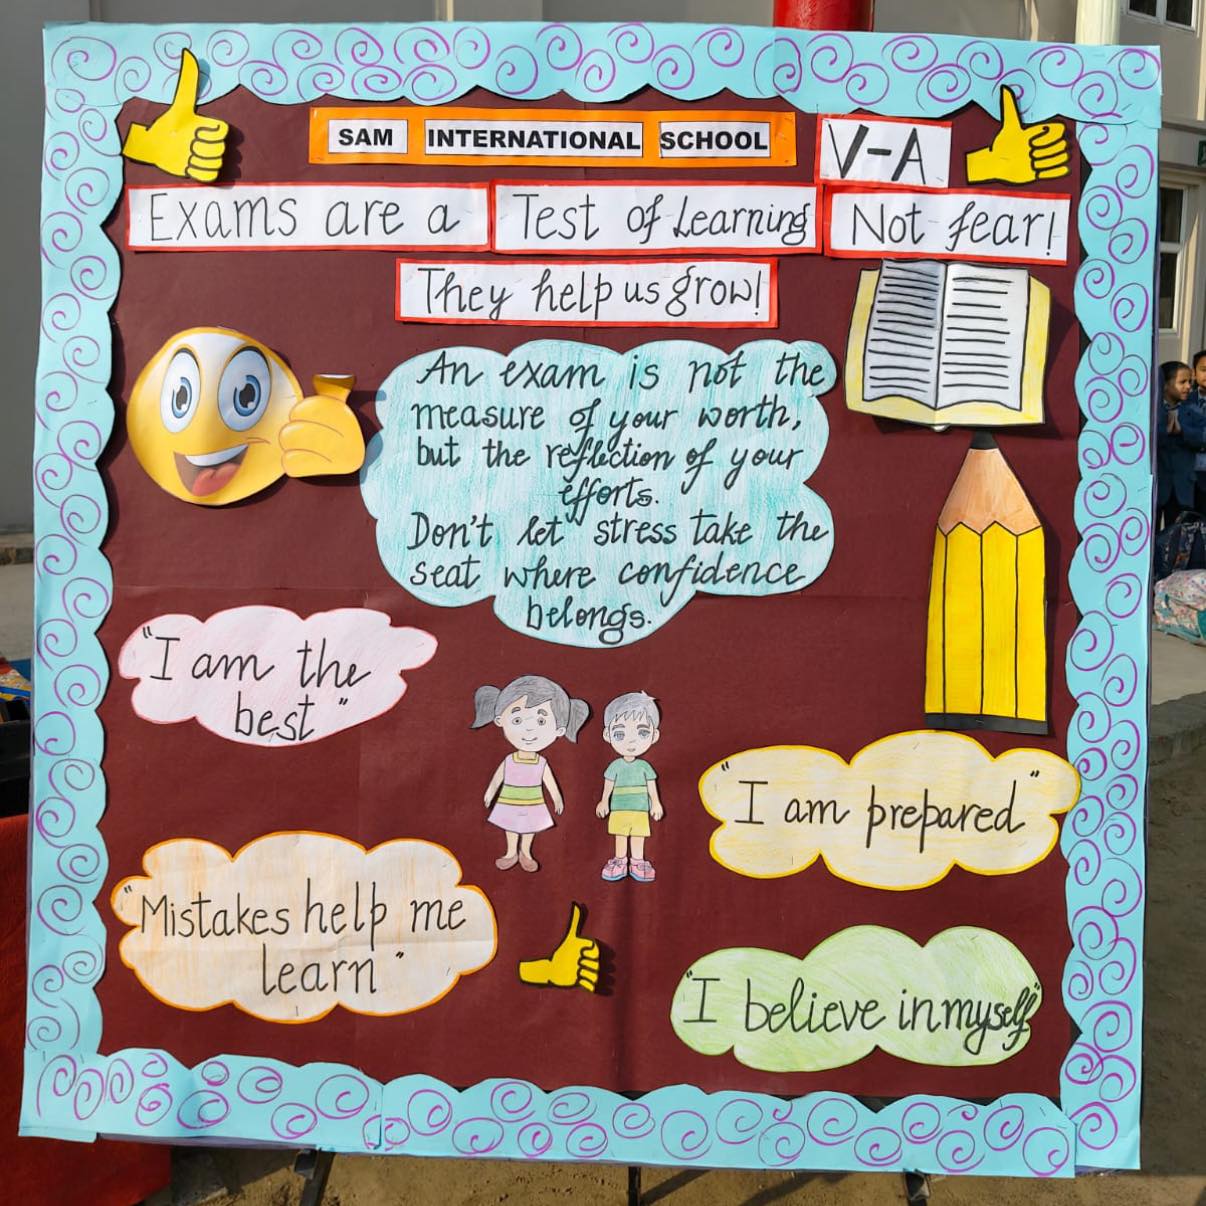 SAM INTERNATIONAL SCHOOL V-A
Exams are a Test of Learning Not fear!
They help us grow!
An exam is not the
measure of your worth,
but the reflection of your
efforts.
Don't let stress take the
seat where confidence
belongs.
"I am the
best"
"I am prepared"
"Mistakes help me
learn"
"I believe in myself"